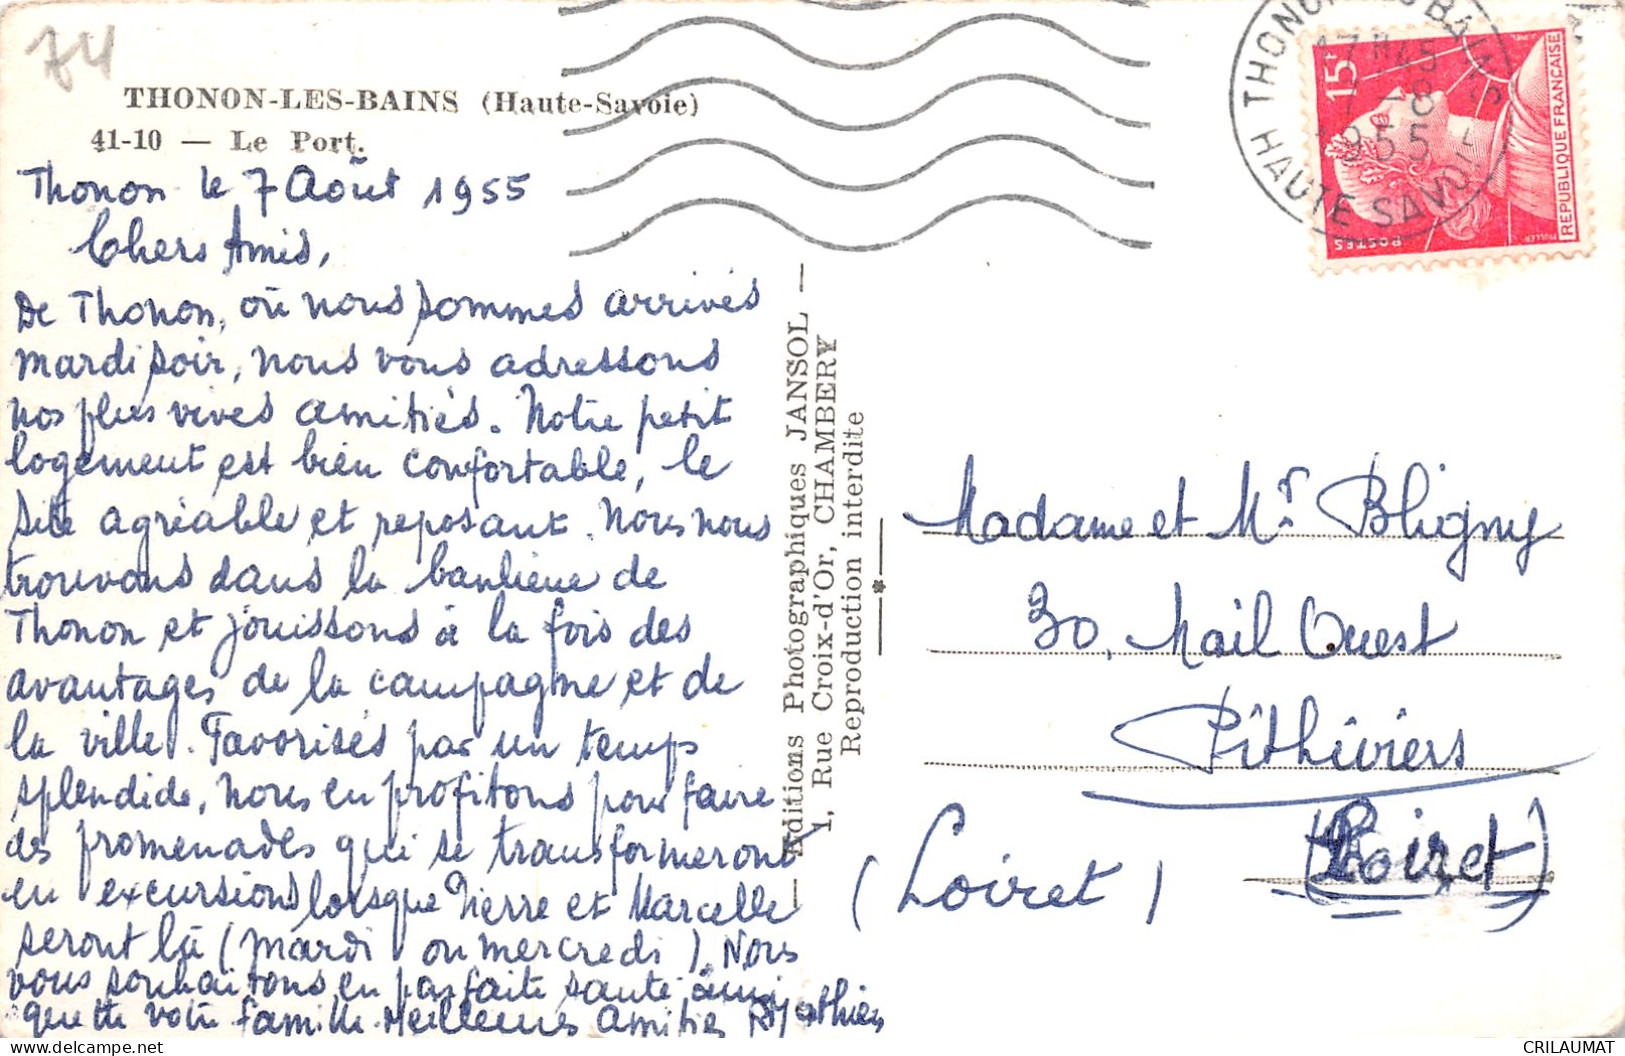 74
THONON-LES-BAINS (Haute-Savoie)
41-10 — Le Port.
Thonon le 7 Août 1955
Chers Amis,
De Thonon, où nous sommes arrivés
mardi soir, nous vous adressons
nos plus vives amitiés. Notre petit
logement est bien confortable, le
site agréable et reposant. Nous nous
trouvons dans la banlieue de
Thonon et jouissons à la fois des
avantages de la campagne et de
la ville. Favorisés par un temps
splendide, nous en profitons pour faire
des promenades qui se transformeront
en excursions lorsque Pierre et Marcelle
seront là (mardi ou mercredi). Nous
vous souhaitons en parfaite santé ainsi
que tte votre famille. Meilleures amitiés
Editions Photographiques JANSOL —
1, Rue Croix-d'Or, CHAMBERY
Reproduction interdite
THONON-LES-BAINS
17 H 45
7 - 8
1955
HAUTE SAVOIE
15F
REPUBLIQUE FRANÇAISE
POSTES
MULLER
Madame et Mr Bligny
30, Mail Ouest
Pithiviers
(Loiret)
(Loiret)
CRILAUMAT